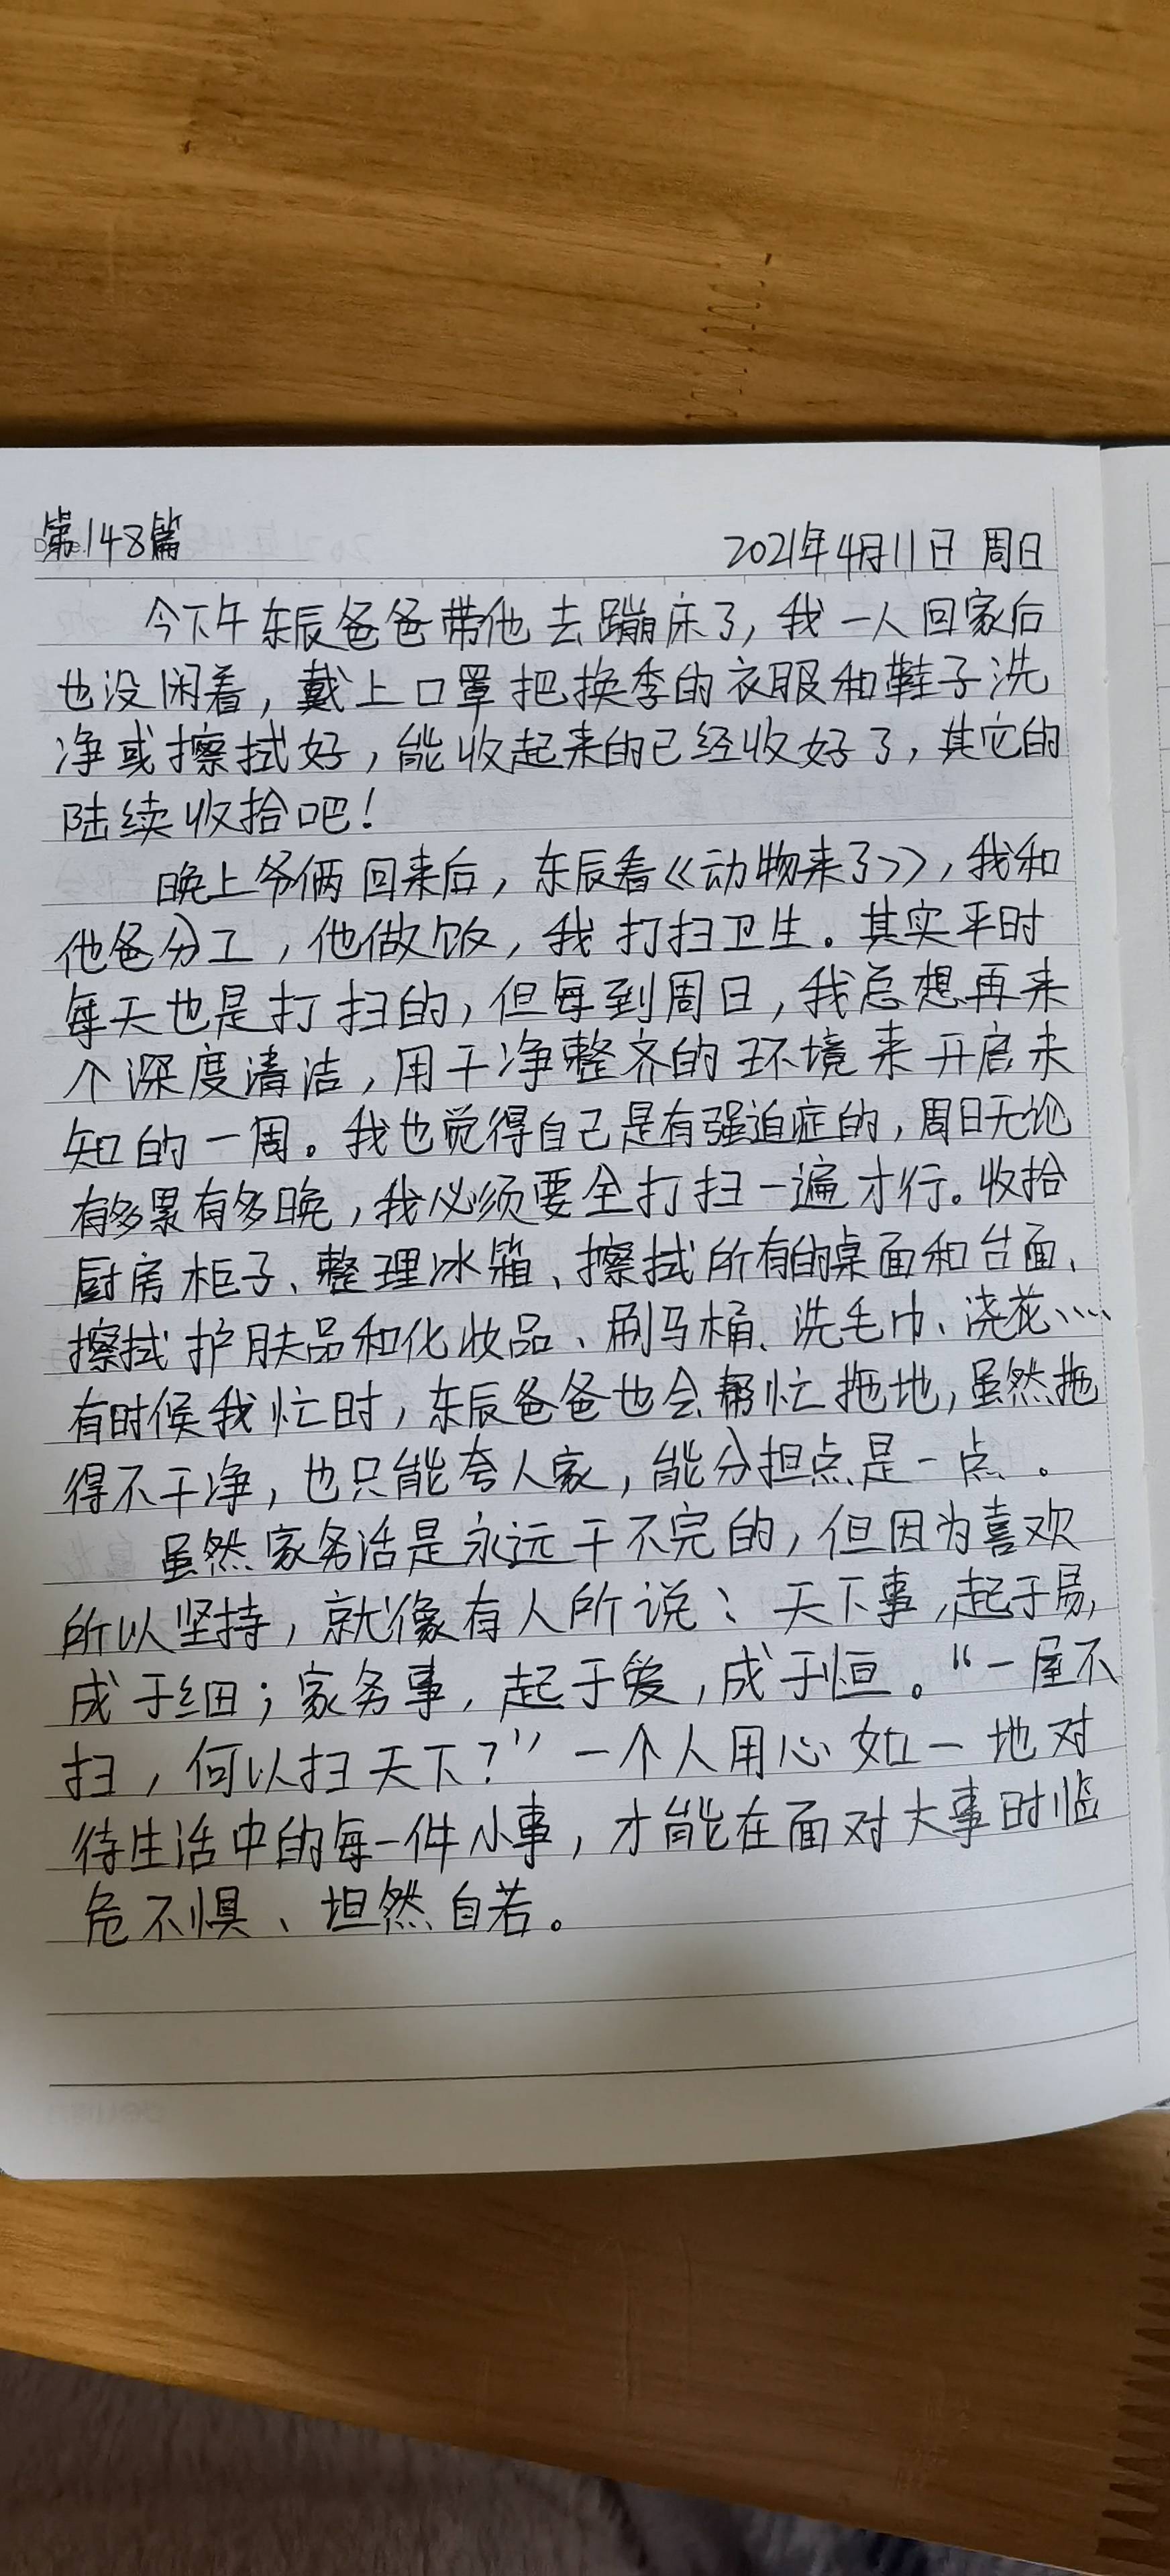 第148篇
2021年4月11日 周日
今下午东辰爸爸带他去蹦床了,我一人回家后
也没闲着,戴上口罩把换季的衣服和鞋子洗
净或擦拭好,能收起来的已经收好了,其它的
陆续收拾吧!
晚上爷俩回来后,东辰看《动物来了》,我和
他爸分工,他做饭,我打扫卫生。其实平时
每天也是打扫的,但每到周日,我总想再来
个深度清洁,用干净整齐的环境来开启未
知的一周。我也觉得自己是有强迫症的,周日无论
有多累有多晚,我必须要全打扫一遍才行。收拾
厨房柜子、整理冰箱、擦拭所有的桌面和台面、
擦拭护肤品和化妆品、刷马桶、洗毛巾、浇花……
有时候我忙时,东辰爸爸也会帮忙拖地,虽然拖
得不干净,也只能夸人家,能分担点是一点。
虽然家务活是永远干不完的,但因为喜欢
所以坚持,就像有人所说:天下事,起于易,
成于细;家务事,起于爱,成于恒。“一屋不
扫,何以扫天下?”一个人用心如一地对
待生活中的每一件小事,才能在面对大事时临
危不惧、坦然自若。